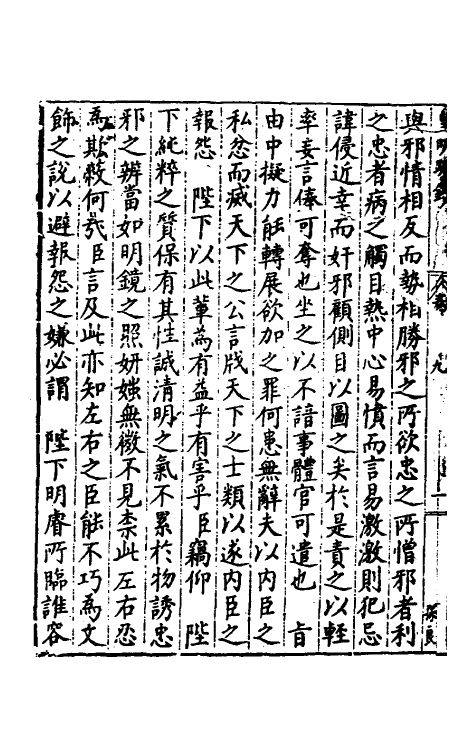 與邪情相反而勢相勝邪之所欲忠之所憎邪者利
之忠者病之觸目熱中心易憤而言易激激則犯忌
諱侵近幸而奸邪顧側目以圖之矣於是責之以輕
率妄言俸可奪也坐之以不諳事體官可遣也 旨
由中擬力能轉展欲加之罪何患無辭夫以内臣之
私忿而滅天下之公言戕天下之士類以遂内臣之
報怨 陛下以此軰為有益乎有害乎臣竊仰 陛
下純粹之質保有其性誠清明之氣不累於物誘忠
邪之辨當如明鏡之照妍媸無微不見柰此左右忍
為欺蔽何哉臣言及此亦知左右之臣能不巧為文
飾之說以避報怨之嫌必謂 陛下明睿所臨誰容